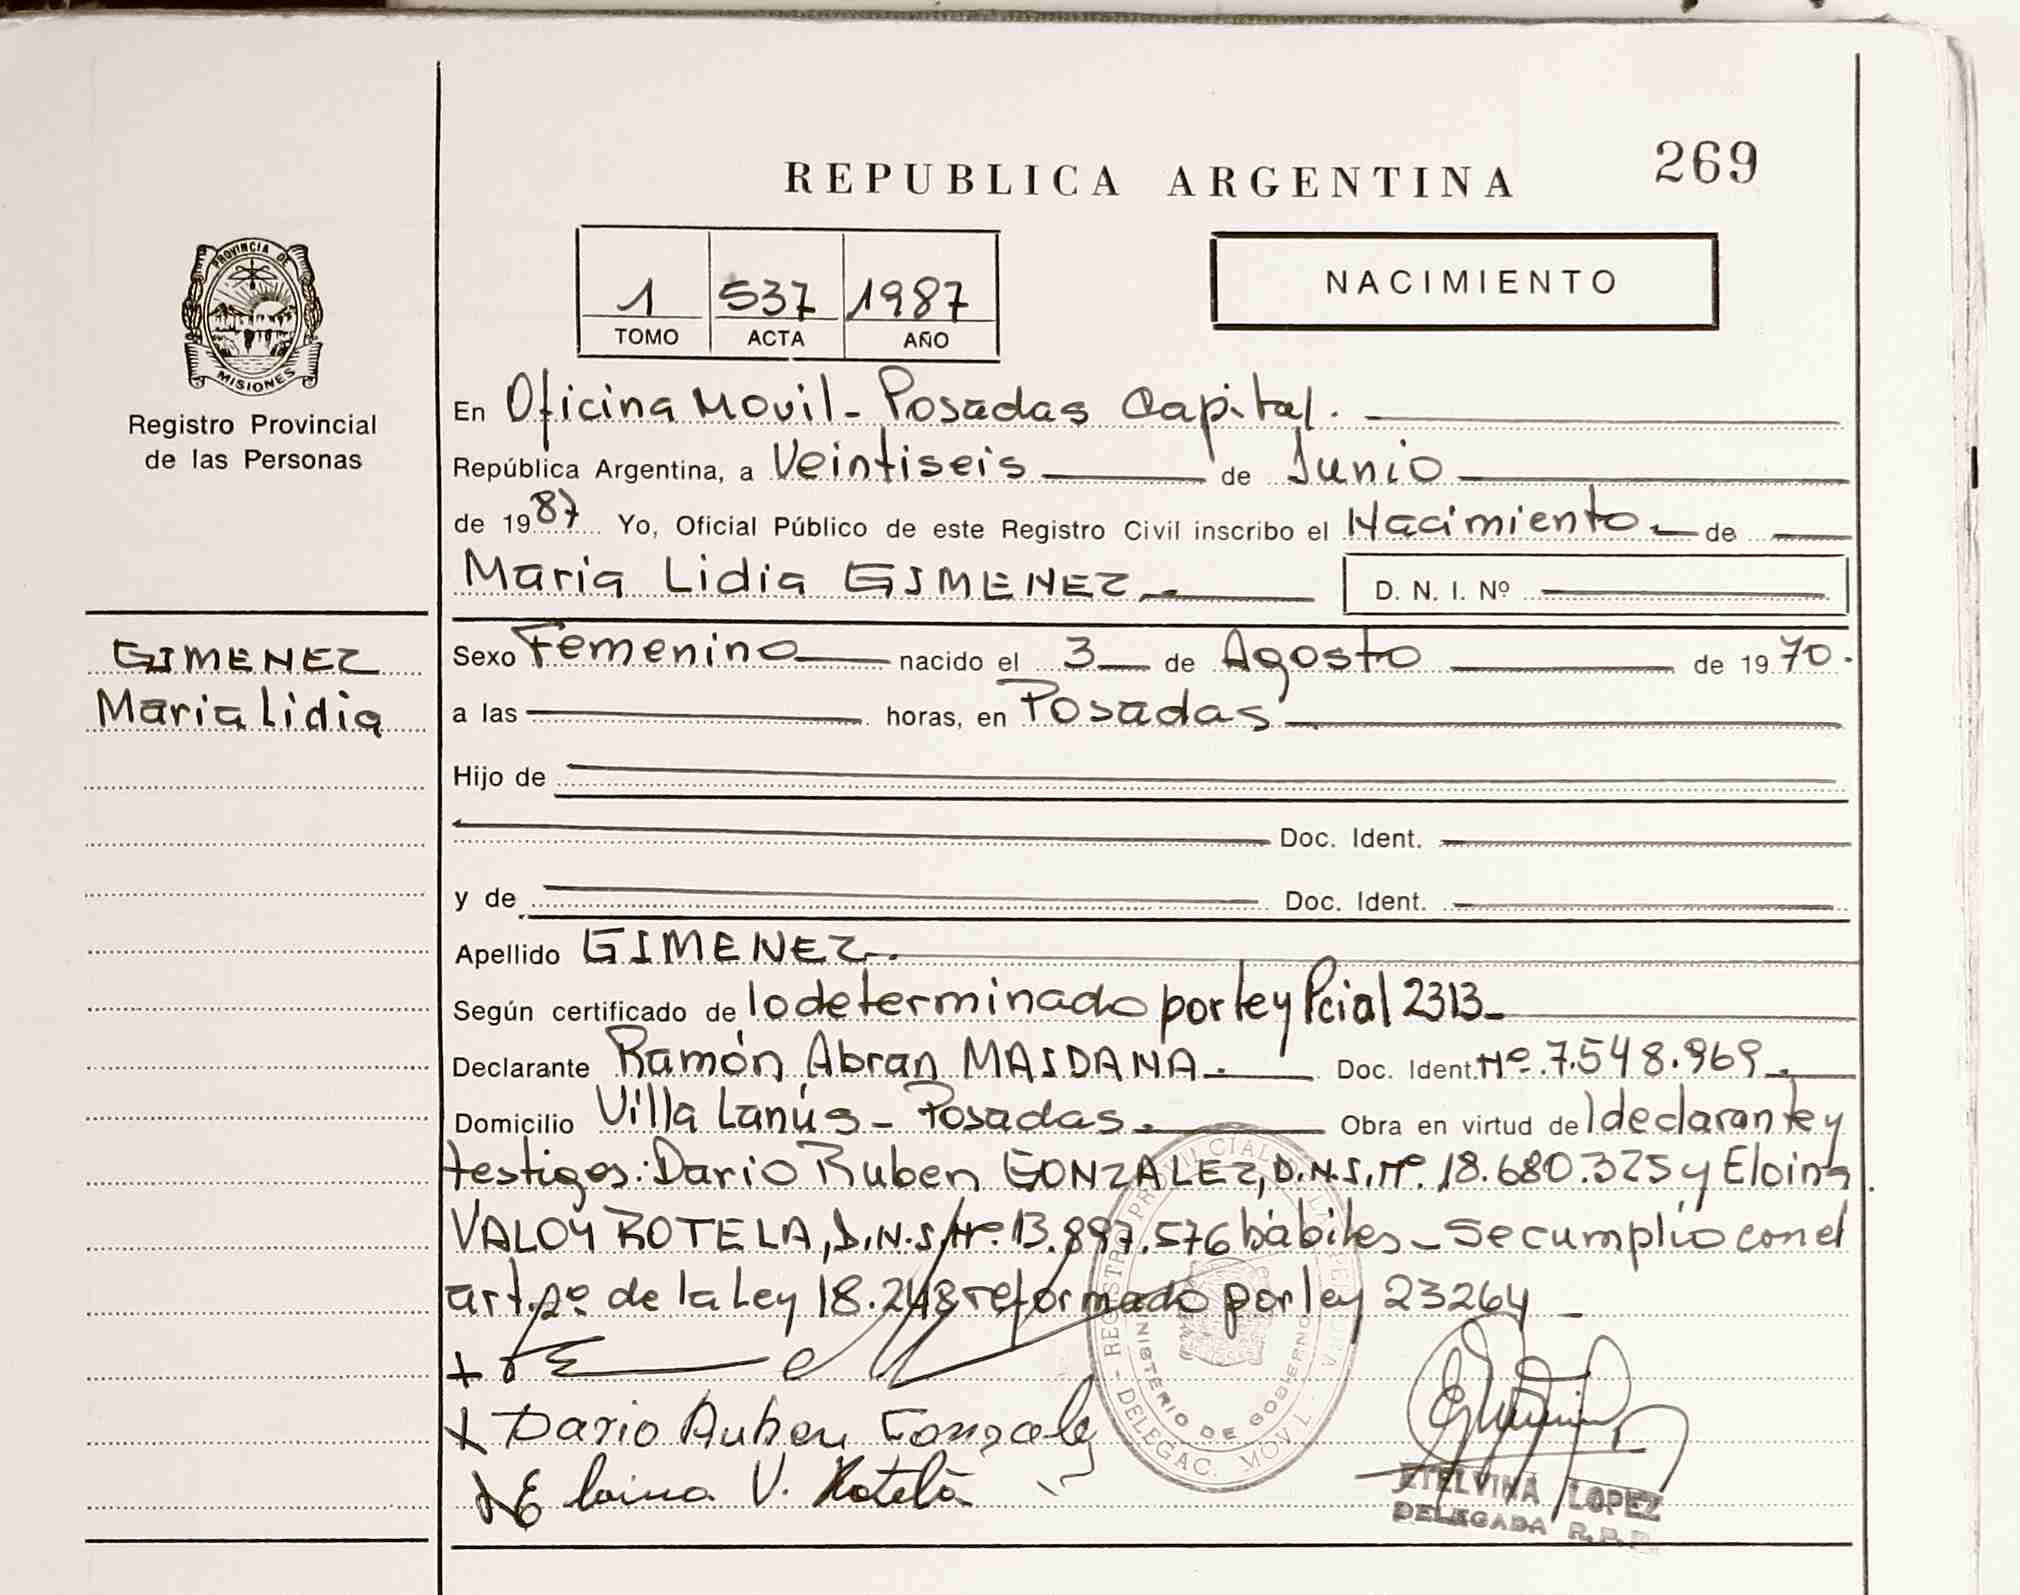 269
REPUBLICA ARGENTINA
PROVINCIA DE
MISIONES
Registro Provincial
de las Personas
1 537 1987
TOMO ACTA AÑO
NACIMIENTO
En Oficina Movil - Posadas Capital.
República Argentina, a Veintiseis de Junio
de 1987 Yo, Oficial Público de este Registro Civil inscribo el Nacimiento de
Maria Lidia GIMENEZ
D. N. I. Nº
GIMENEZ
Maria Lidia
Sexo Femenino nacido el 3 de Agosto de 1970.
a las horas, en Posadas
Hijo de
Doc. Ident.
y de Doc. Ident.
Apellido GIMENEZ.
Según certificado de lo determinado por ley Pcial 2313
Declarante Ramón Abran MAIDANA. Doc. Ident. Nº 7.548.969
Domicilio Villa Lanús - Posadas. Obra en virtud del declarante y
testigos: Dario Ruben GONZALEZ, D.N.I. Nº 18.680.325 y Eloina
VALOY ROTELA, D.N.I Nº 13.897.576 hábiles - Se cumplio con el
art. 2º de la Ley 18.248 reformado por ley 23264
Dario Ruben Gonzalez
Eloina V. Rotela
MINISTERIO DE GOBIERNO
DELEGAC. MOVIL
ETELVINA LOPEZ
DELEGADA R.P.P.